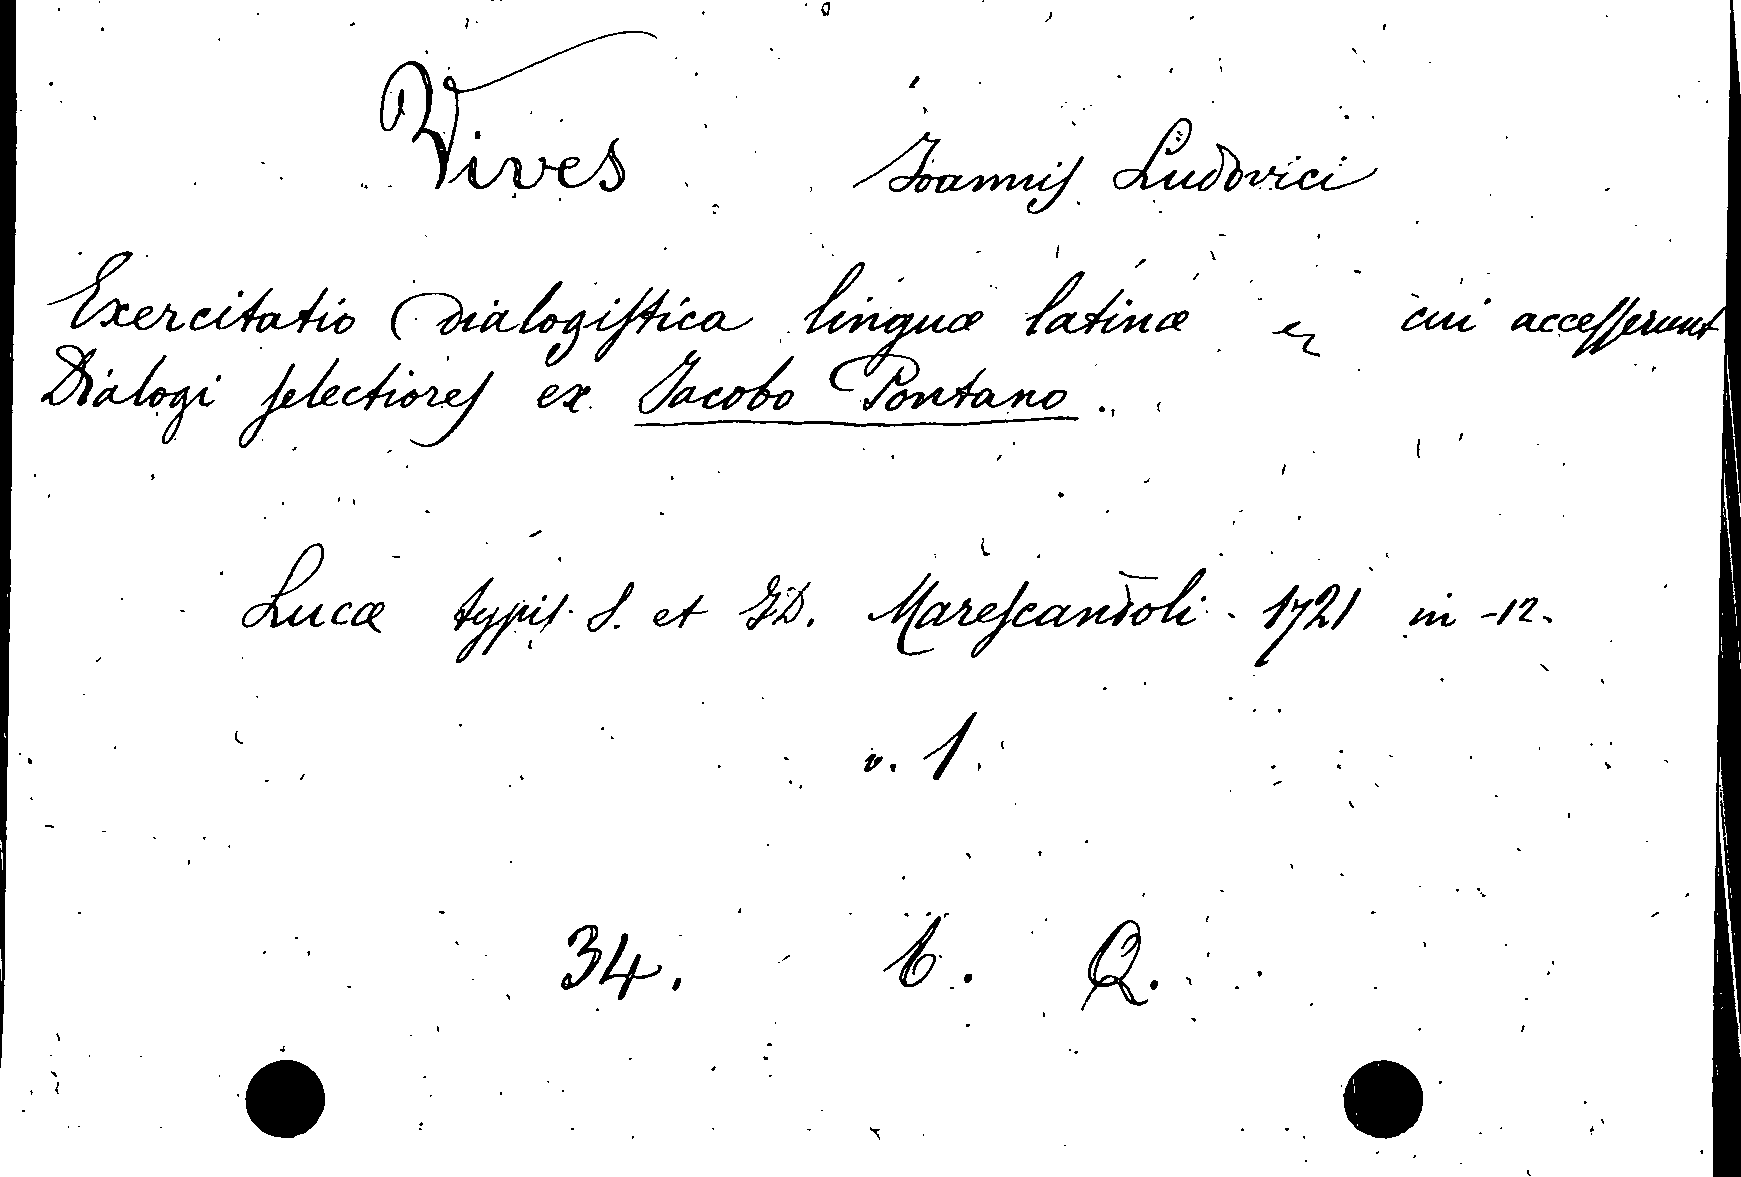 Vives Ioannis Ludovici
Exercitatio Dialogistica linguæ latinæ cui accesserunt
Dialogi selectiores ex Jacobo Pontano.
Lucæ typis S. et J.D. Marescandoli - 1721 in -12.
v. 1.
34. b. Q.